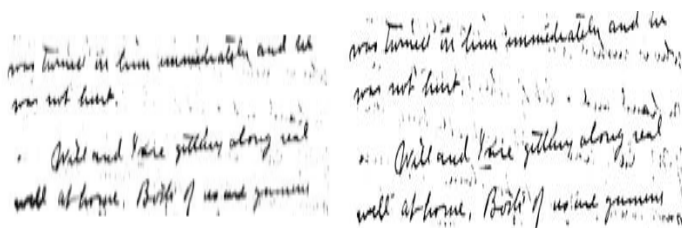 was turned him immediately and he
was not hurt.
Will and I are getting along real
well at home. Both of us are
was turned him immediately and he
was not hurt.
Will and I are getting along real
well at home. Both of us are